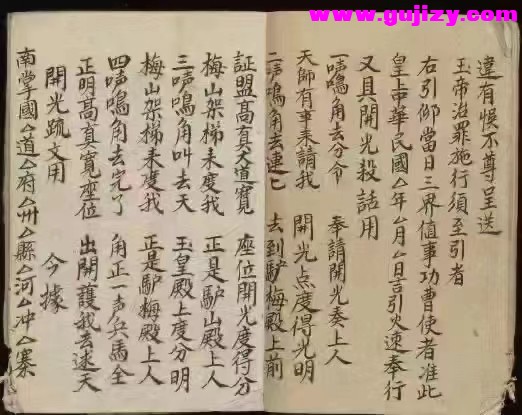 www.gujizy.com
違有悞不尊呈送
玉帝治罪施行須至引者
右引仰當日三界值事功曹使者准此
皇古華民國厶年厶月厶日吉引火速奉行
又具開光殺話用
一鳴角去分令 奉請開光奏上人
天師有事来請我 開光点度得光明
二鳴角去連匕 去到馿梅殿上前
証盟高真大道寬 座位開光度得分
梅山架梯来度我 正是馿山殿上人
三鳴角叫去天 玉皇殿上度分明
梅山架梯来度我 正是馿梅殿上人
四鳴角去完了 角正一声兵馬全
正明高真寬座位 出開護我去速天
開光疏文用 今據
南掌國厶道厶府厶州厶縣厶河厶冲厶寨